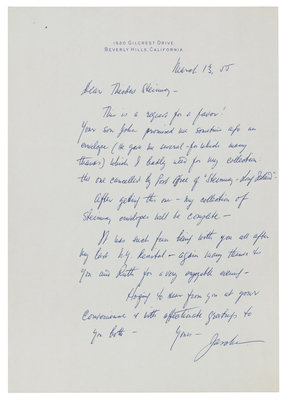 1520 GILCREST DRIVE
BEVERLY HILLS, CALIFORNIA
March 13, 55
Dear Theodore Steinway -
This is a request for a favor!
Your son John promised me sometime ago an
envelope (He gave me several - for which many
thanks) which I badly need for my collection -
the one cancelled by Post Office of "Steinway - Long Island"
After getting this one - my collection of
Steinway envelopes will be complete -
It was such fun being with you all after
my last N.Y. Recital - again many thanks to
you and Ruth for a very enjoyable evening -
Hoping to hear from you at your
convenience & with affectionate greetings to
you both - Yours -
Jascha